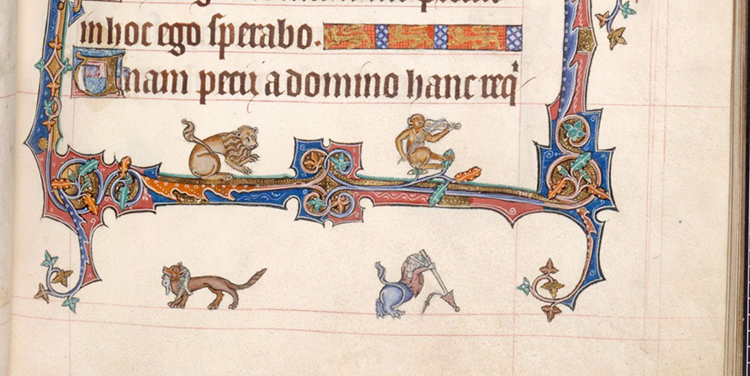 in hoc ego sperabo.
Unam petii a domino hanc req